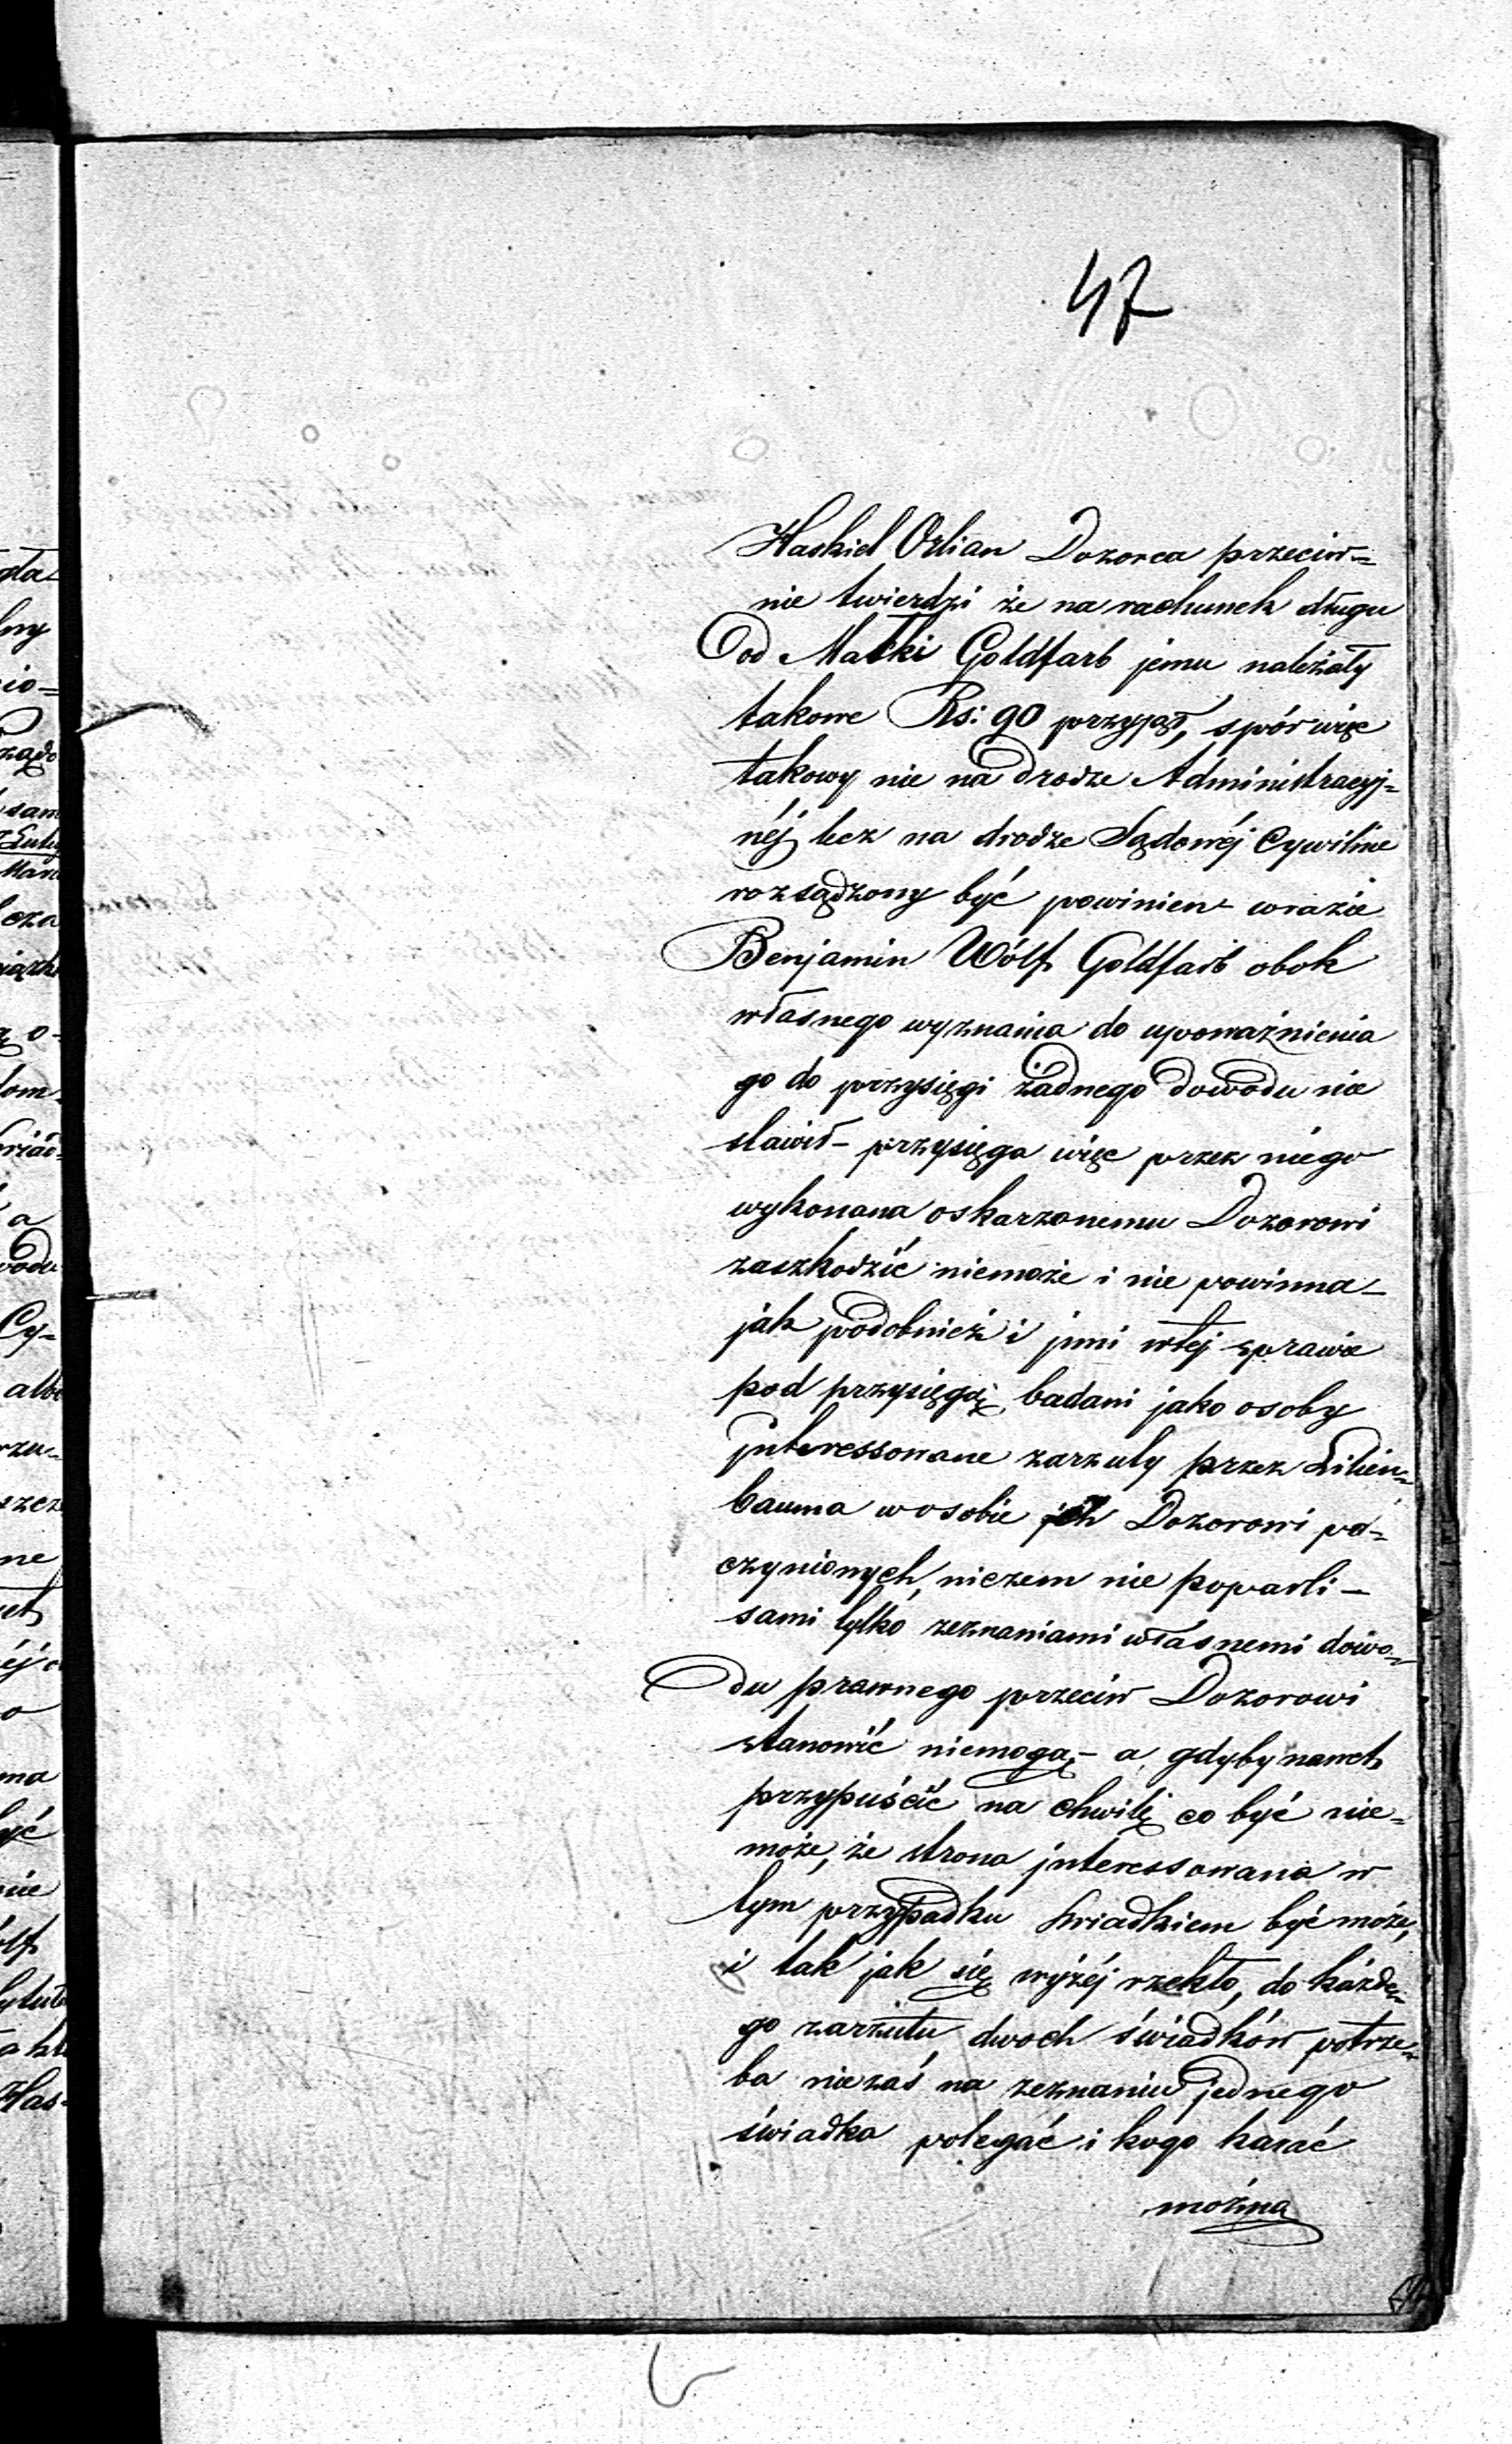 47
Haskiel Orlian Dozorca przeciw=
nie twierdzi że na rachunek długu
Od Matki Goldfarb jemu należały
takowe Rs: 90 przyjął, spór więc
takowy nie na drodze Administracyj=
néj lecz na drodze Sądowéj Cywilnie
rozsądzony być powinien - wrazie
Benjamin Wólf Goldfarb obok
własnego wyznania do upoważnienia
go do przysięgi żadnego dowodu nie
stawił - przysięga więc przez niego
wykonana oskarzonemu Dozorowi
zaszkodzić niemoże i nie powinna -
jak podobnież i jnni wtej sprawie
pod przysięgą badani jako osoby
jnteressowane zarzuty przez Lilien=
bauma w osobie ich Dozorowi po=
czynionych, niczem nie poparli -
sami tylko zeznaniami własnemi dowo=
du prawnego przeciw Dozorowi
stanowić niemogą - a gdyby nawet
przypuścić na chwilę co być nie=
może, że strona jnteressowana w
tym przypadku świadkiem być może,
i tak jak się wyżéj rzekło, do każde=
go zarzutu dwoch świadków potrze=
ba niezaś na zeznaniu jednego
świadka polegać i kogo karać
można